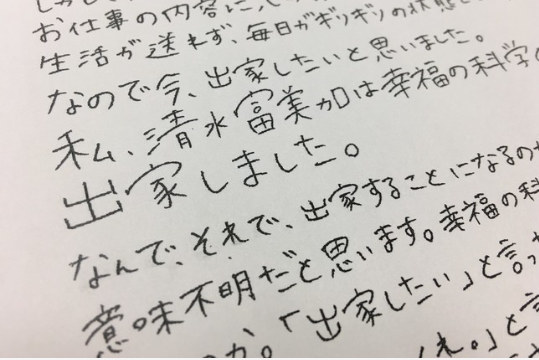 お仕事の内容に心が
生活が送れず、毎日がギリギリの状態
なので今、出家したいと思いました。
私、清水富美加は幸福の科学の
出家しました。
なんで、それで、出家することになるのか
意味不明だと思います。幸福の科
か。「出家したい」と言っ
え。」と言